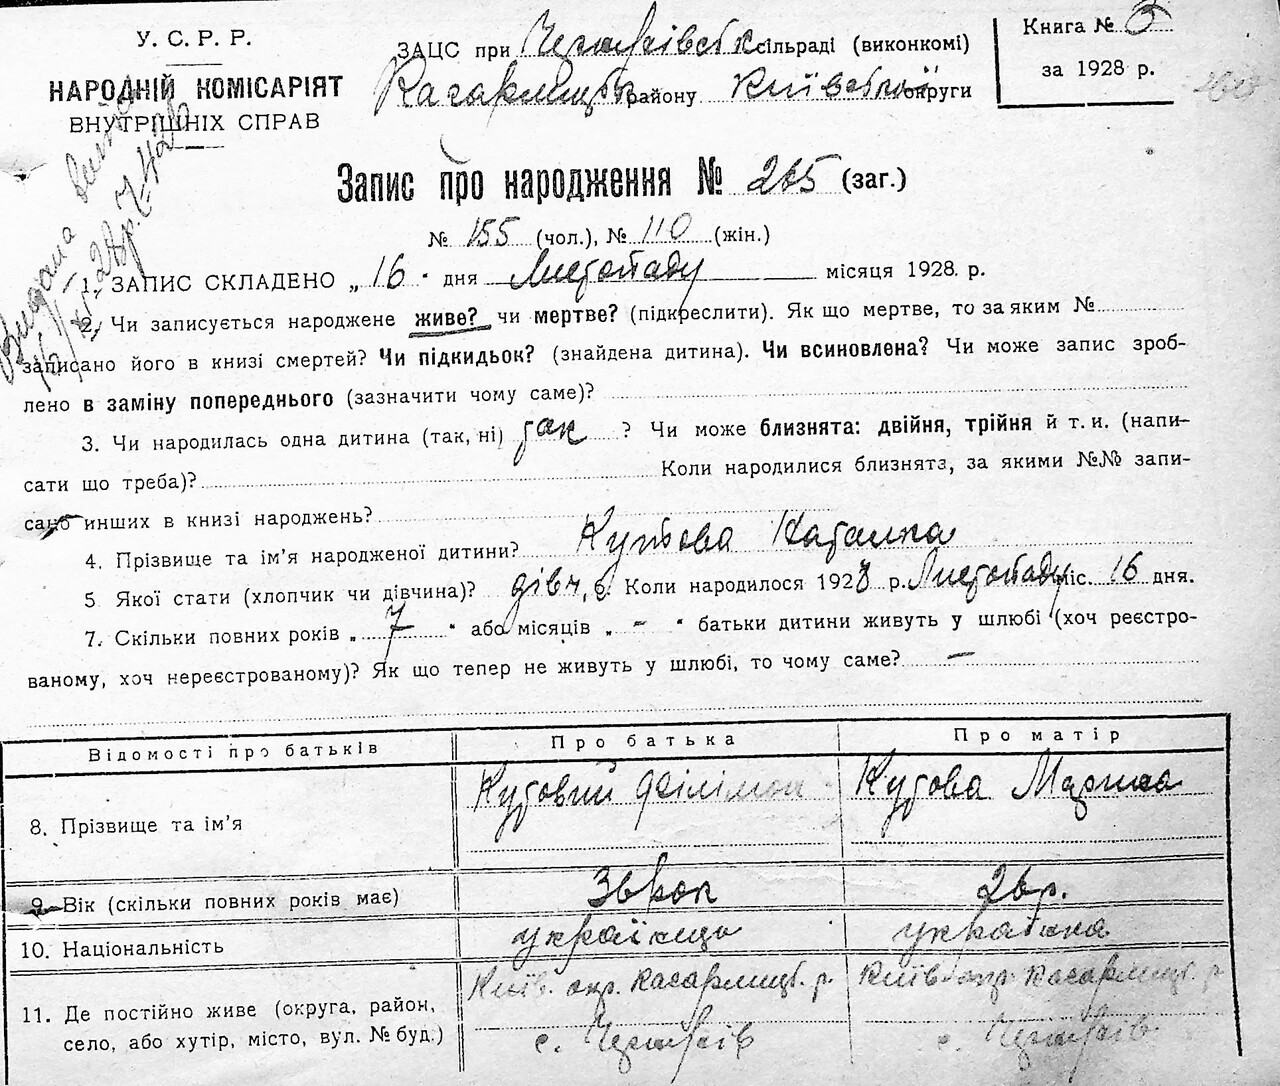 У. С. Р. Р.
НАРОДНІЙ КОМІСАРІЯТ
ВНУТРІШНІХ СПРАВ
ЗАЦС при сільраді (виконкомі)
Кагарлицьк району Київської округи
Книга № 5
за 1928 р.
Видана
Запис про народження № 265 (заг.)
№ 155 (чол.), № 110 (жін.)
1. ЗАПИС СКЛАДЕНО „ 16 " дня Листопаду місяця 1928. р.
2. Чи записується народжене живе? чи мертве? (підкреслити). Як що мертве, то за яким №
записано його в книзі смертей? Чи підкидьок? (знайдена дитина). Чи всиновлена? Чи може запис зроб-
лено в заміну попереднього (зазначити чому саме)?
3. Чи народилась одна дитина (так, ні) так ? Чи може близнята: двійня, трійня й т. и. (напи-
сати що треба)? Коли народилися близнята, за якими №№ запи-
сано инших в книзі народжень?
4. Прізвище та ім'я народженої дитини? Кутова Наталка
5 Якої стати (хлопчик чи дівчина)? дівч. 6. Коли народилося 1928 р. Листопаду міс. 16 дня.
7. Скільки повних років „ 7 " або місяців „ - " батьки дитини живуть у шлюбі (хоч реєстро-
ваному, хоч нереєстрованому)? Як що тепер не живуть у шлюбі, то чому саме? —
Відомості про батьків Про батька Про матір
8. Прізвище та ім'я Кутовий Філімон Кутова Марина
9. Вік (скільки повних років має) рок 26 р.
10. Національність українець українка
11. Де постійно живе (округа, район, Київ. окр. Кагарлицьк. р. Київ. окр. Кагарлицьк. р.
село, або хутір, місто, вул. № буд.) с. с.